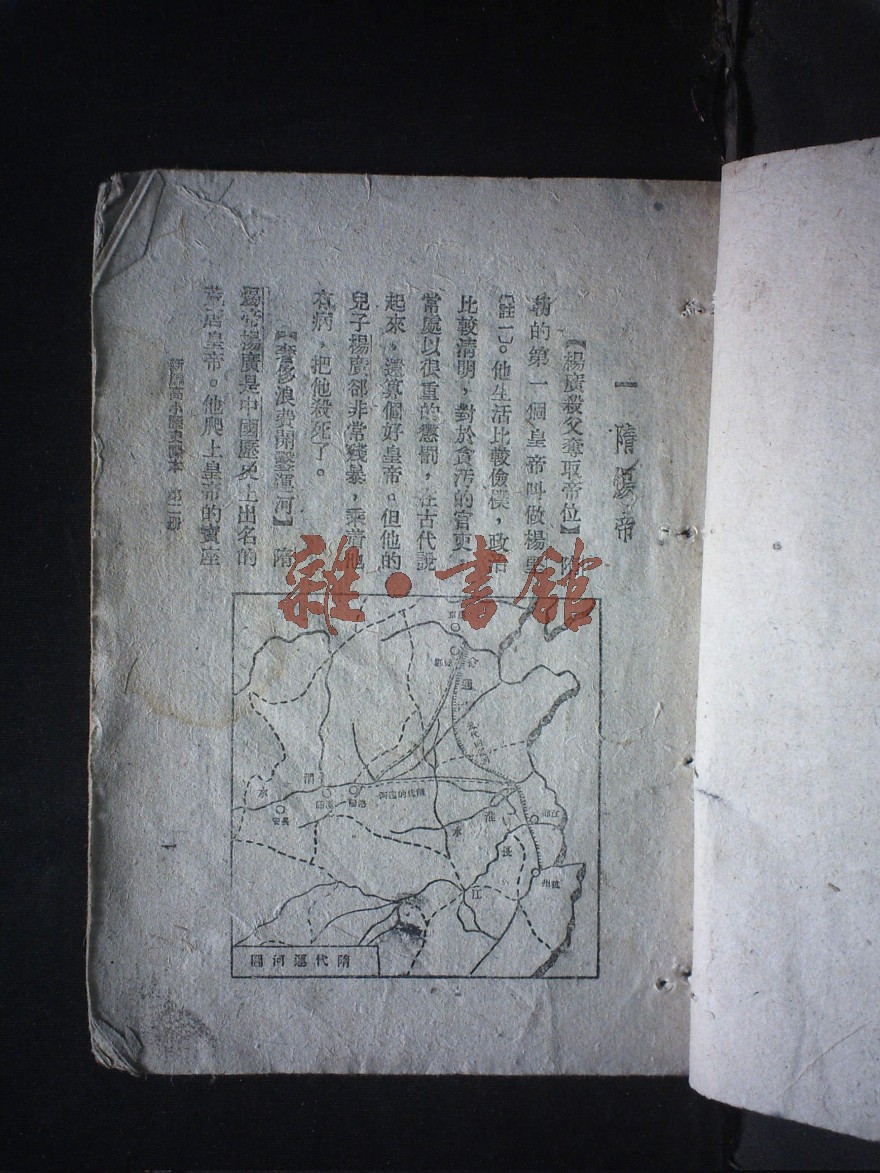 一 隋煬帝
【楊廣殺父奪取帝位】 隋
朝的第一個皇帝叫做楊堅
（註一）。他生活比較儉樸，政治
比較清明，對於貪汚的官吏，
常處以很重的懲罰，在古代說
起來，還算個好皇帝。但他的
兒子楊廣卻非常殘暴，乘着他
有病，把他殺死了。
【奢侈浪費開鑿運河】 隋
煬帝楊廣是中國歷史上出名的
荒唐皇帝。他爬上皇帝的寶座
新編高小歷史課本 第二册
一
雜·書館
涿郡
通
渭
水
長安
洛陽
隋代的運河
淮
水
長
江
江都
杭州
隋代運河圖